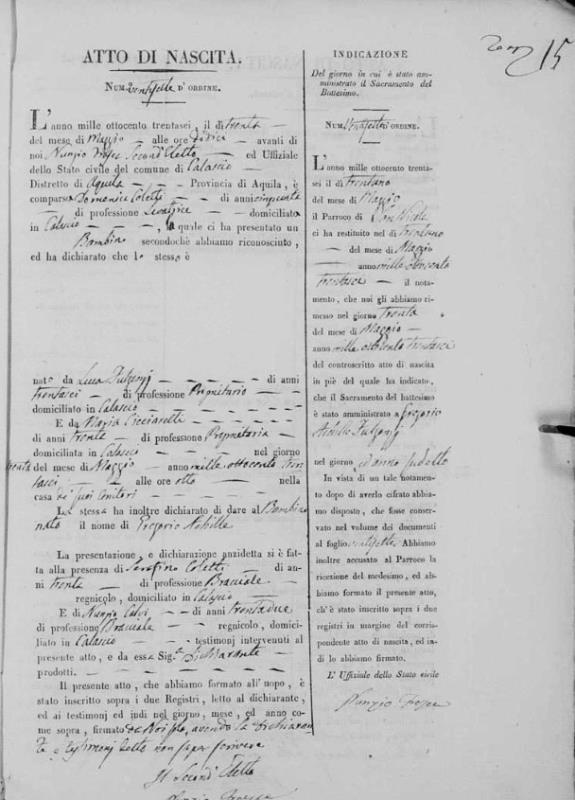 15
ATTO DI NASCITA.
NUM. Ventisette D'ORDINE.
L'anno mille ottocento trentasei, il dì trenta
del mese di Maggio alle ore dodici avanti di
noi Nunzio Second'Eletto ed Uffiziale
dello Stato civile del comune di Calascio
Distretto di Aquila Provincia di Aquila, è
comparsa Domenica Coletti di anni cinquanta
di professione Levatrice domiciliata
in Calascio la quale ci ha presentato un
Bambino secondochè abbiamo riconosciuto,
ed ha dichiarato che lo stesso è
nato da Luca Fulgenzj di anni
trentasei di professione Proprietario
domiciliato in Calascio
E da Maria Cicciarelli
di anni trenta di professione Proprietaria
domiciliata in Calascio nel giorno
trenta del mese di Maggio anno mille ottocento tren
tasei alle ore otto nella
casa de' suoi Genitori
La stessa ha inoltre dichiarato di dare al Bambino
nato il nome di Gregorio Achille
La presentazione, e dichiarazione anzidetta si è fat-
ta alla presenza di Serafino Coletti di an-
ni trenta di professione Bracciale
regnicolo, domiciliato in Calascio
E di Nunzio di anni trentadue
di professione Bracciale regnicolo, domici-
liato in Calascio testimonj intervenuti al
presente atto, e da essa Sig.a Dichiarante
prodotti.
Il presente atto, che abbiamo formato all'uopo, è
stato inscritto sopra i due Registri, letto al dichiarante,
ed ai testimonj ed indi nel giorno, mese, ed anno co-
me sopra, firmato da Noi solo, avendo la Dichiaran
te e testimonj detto non saper scrivere
Il Second'Eletto
Nunzio
INDICAZIONE
Del giorno in cui è stato am-
ministrato il Sacramento del
Battesimo.
NUM. Ventisette D'ORDINE.
L'anno mille ottocento trenta-
sei il dì trentuno
del mese di Maggio
il Parroco di San Nicola
ci ha restituito nel dì trentuno
del mese di Maggio
anno mille ottocento
trentasei il nota-
mento, che noi gli abbiamo ri-
messo nel giorno trenta
del mese di Maggio
anno mille ottocento trentasei
del controscritto atto di nascita
in piè del quale ha indicato,
che il Sacramento del battesimo
è stato amministrato a Gregorio
Achille Fulgenzj
nel giorno ed anno sudetto
In vista di un tale notamen-
to dopo di averlo cifrato abbia-
mo disposto, che fosse conser-
vato nel volume dei documenti
al foglio ventisette Abbiamo
inoltre accusato al Parroco la
ricezione del medesimo, ed ab-
biamo formato il presente atto,
ch'è stato inscritto sopra i due
registri in margine del corri-
spondente atto di nascita, ed in-
di lo abbiamo firmato.
L'Uffiziale dello Stato civile
Nunzio